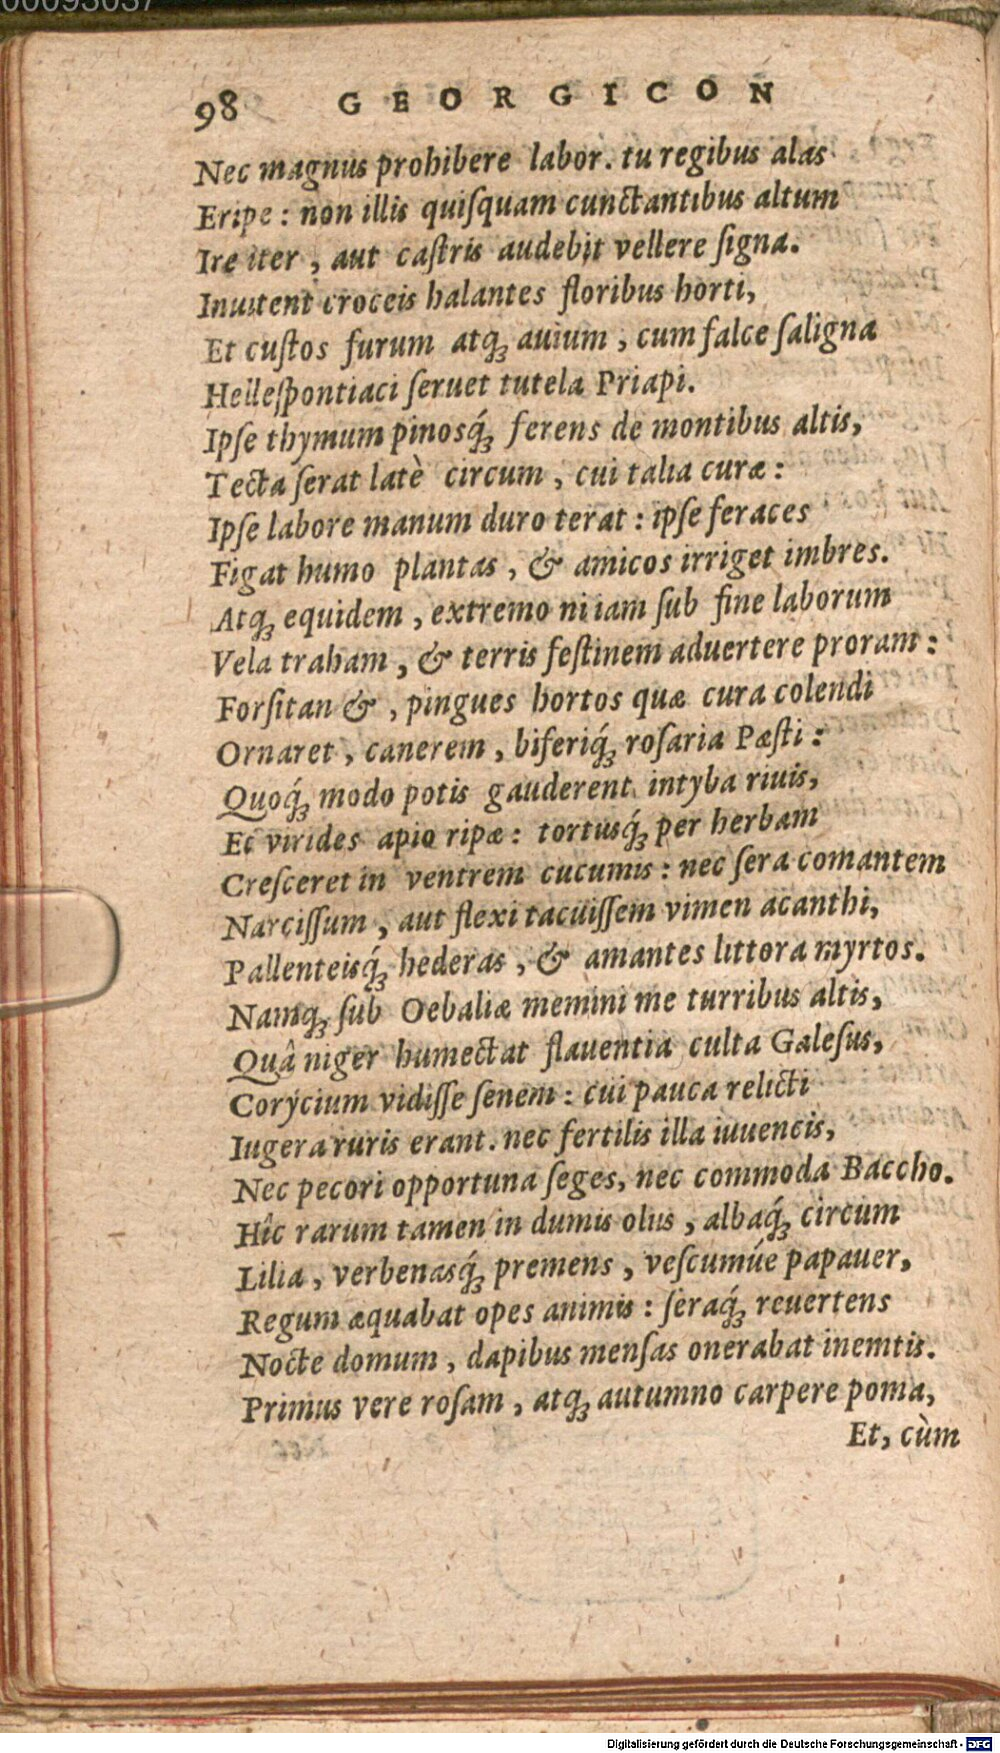 00093037
98 GEORGICON
Nec magnus prohibere labor. tu regibus alas
Eripe: non illis quiſquam cunctantibus altum
Ire iter, aut caſtris audebit vellere ſigna.
Inuitent croceis halantes floribus horti,
Et cuſtos furum atq́ꝫ auium, cum falce ſaligna
Helleſpontiaci ſeruet tutela Priapi.
Ipſe thymum pinosq́ꝫ ferens de montibus altis,
Tecta ſerat latè circum, cui talia curæ:
Ipſe labore manum duro terat: ipſe feraces
Figat humo plantas, & amicos irriget imbres.
Atqꝫ equidem, extremo ni iam ſub fine laborum
Vela traham, & terris feſtinem aduertere proram:
Forſitan &, pingues hortos quæ cura colendi
Ornaret, canerem, biferiq́ꝫ roſaria Pæſti:
Quoq́ꝫ modo potis gauderent intyba riuis,
Et virides apio ripæ: tortusq́ꝫ per herbam
Creſceret in ventrem cucumis: nec ſera comantem
Narciſſum, aut flexi tacuiſſem vimen acanthi,
Pallenteisq́ꝫ hederas, & amantes littora myrtos.
Namqꝫ ſub Oebaliæ memini me turribus altis,
Quâ niger humectat flauentia culta Galeſus,
Corýcium vidiſſe ſenem: cui pauca relicti
Iugera ruris erant. nec fertilis illa iuuencis,
Nec pecori opportuna ſeges, nec commoda Baccho.
Hîc rarum tamen in dumis olus, albaq́ꝫ circum
Lilia, verbenasq́ꝫ premens, veſcumúe papauer,
Regum æquabat opes animis: ſeraq́ꝫ reuertens
Nocte domum, dapibus menſas onerabat inemtis.
Primus vere roſam, atqꝫ autumno carpere poma,
Et, cùm
Digitalisierung gefördert durch die Deutsche Forschungsgemeinschaft - DFG